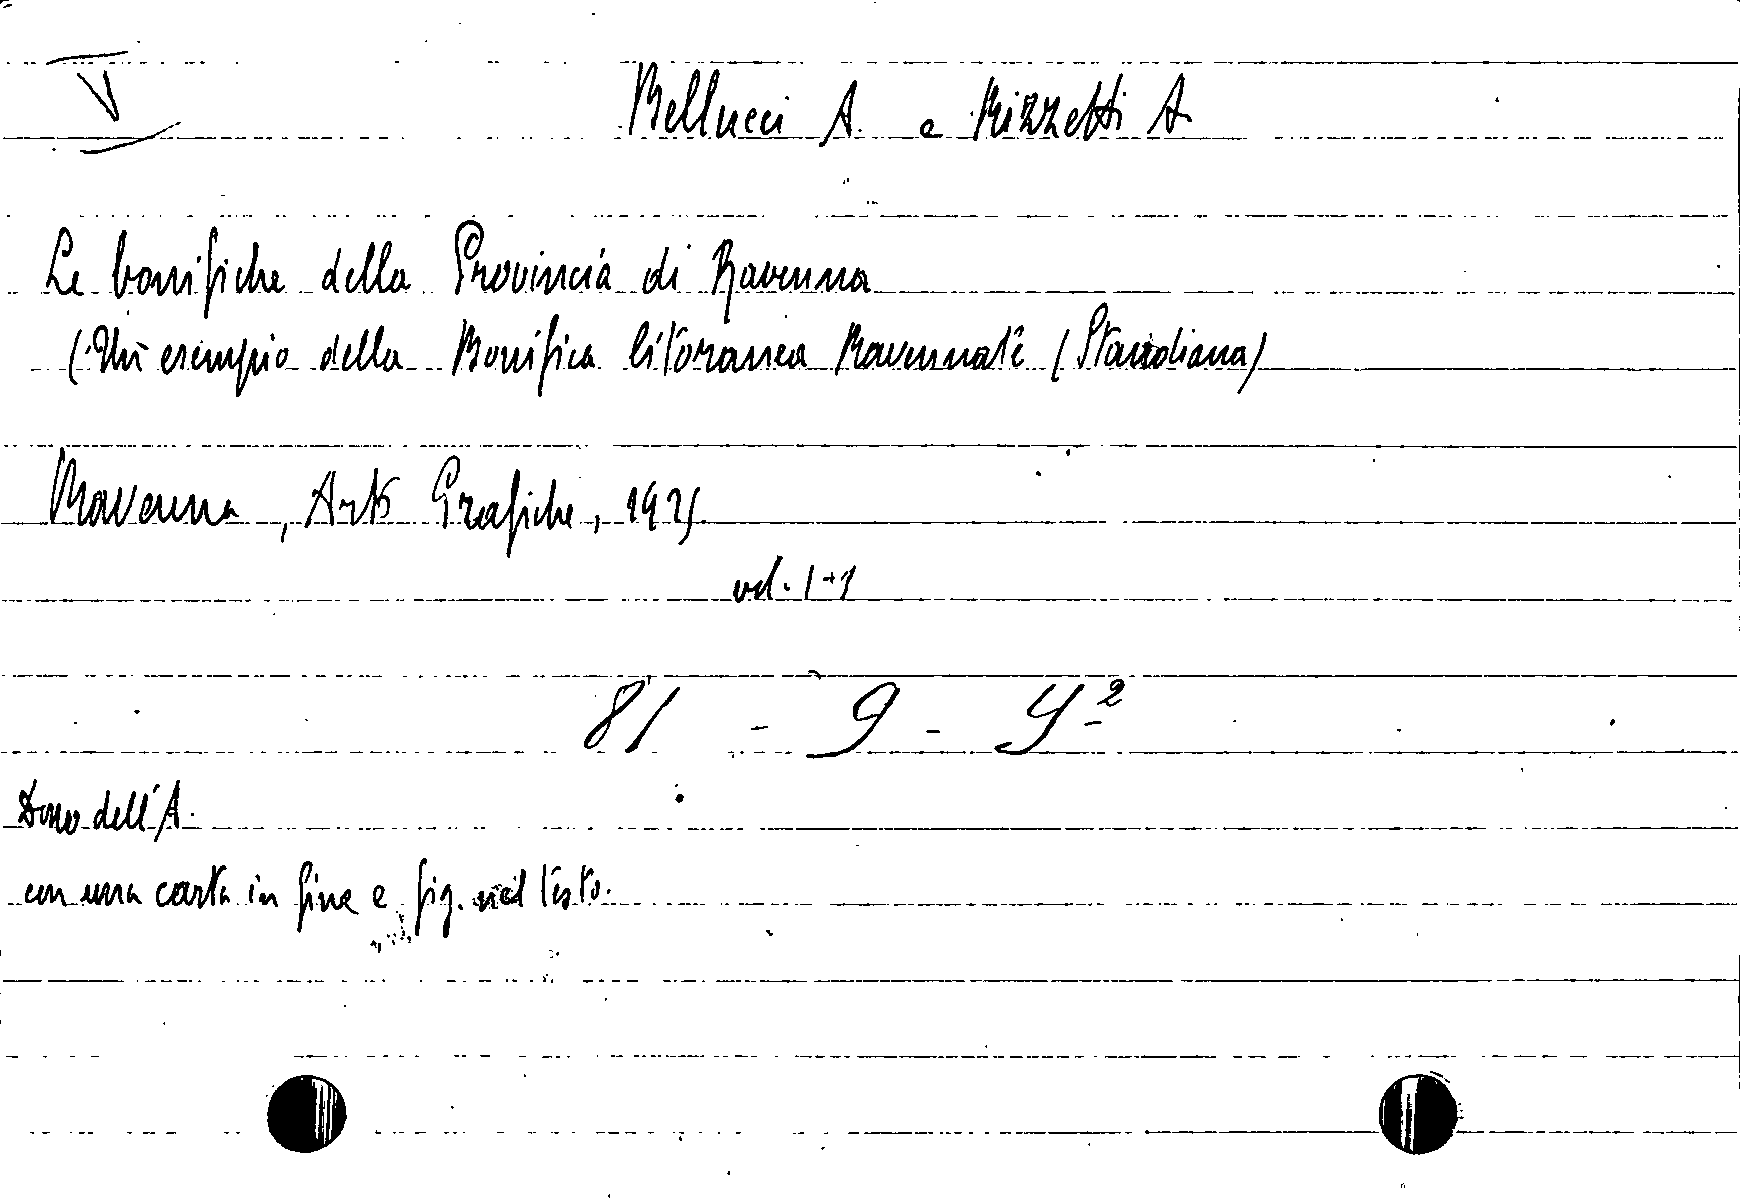 V
Bellucci A. e Rizzetti A.
Le bonifiche della Provincia di Ravenna
(Un esempio della Bonifica litoranea Ravennate (Standiana)
Ravenna, Arti Grafiche, 1925.
vol. 1+1
81 - 9 - 9²
Dono dell'A.
con una carta in fine e fig. nel testo.